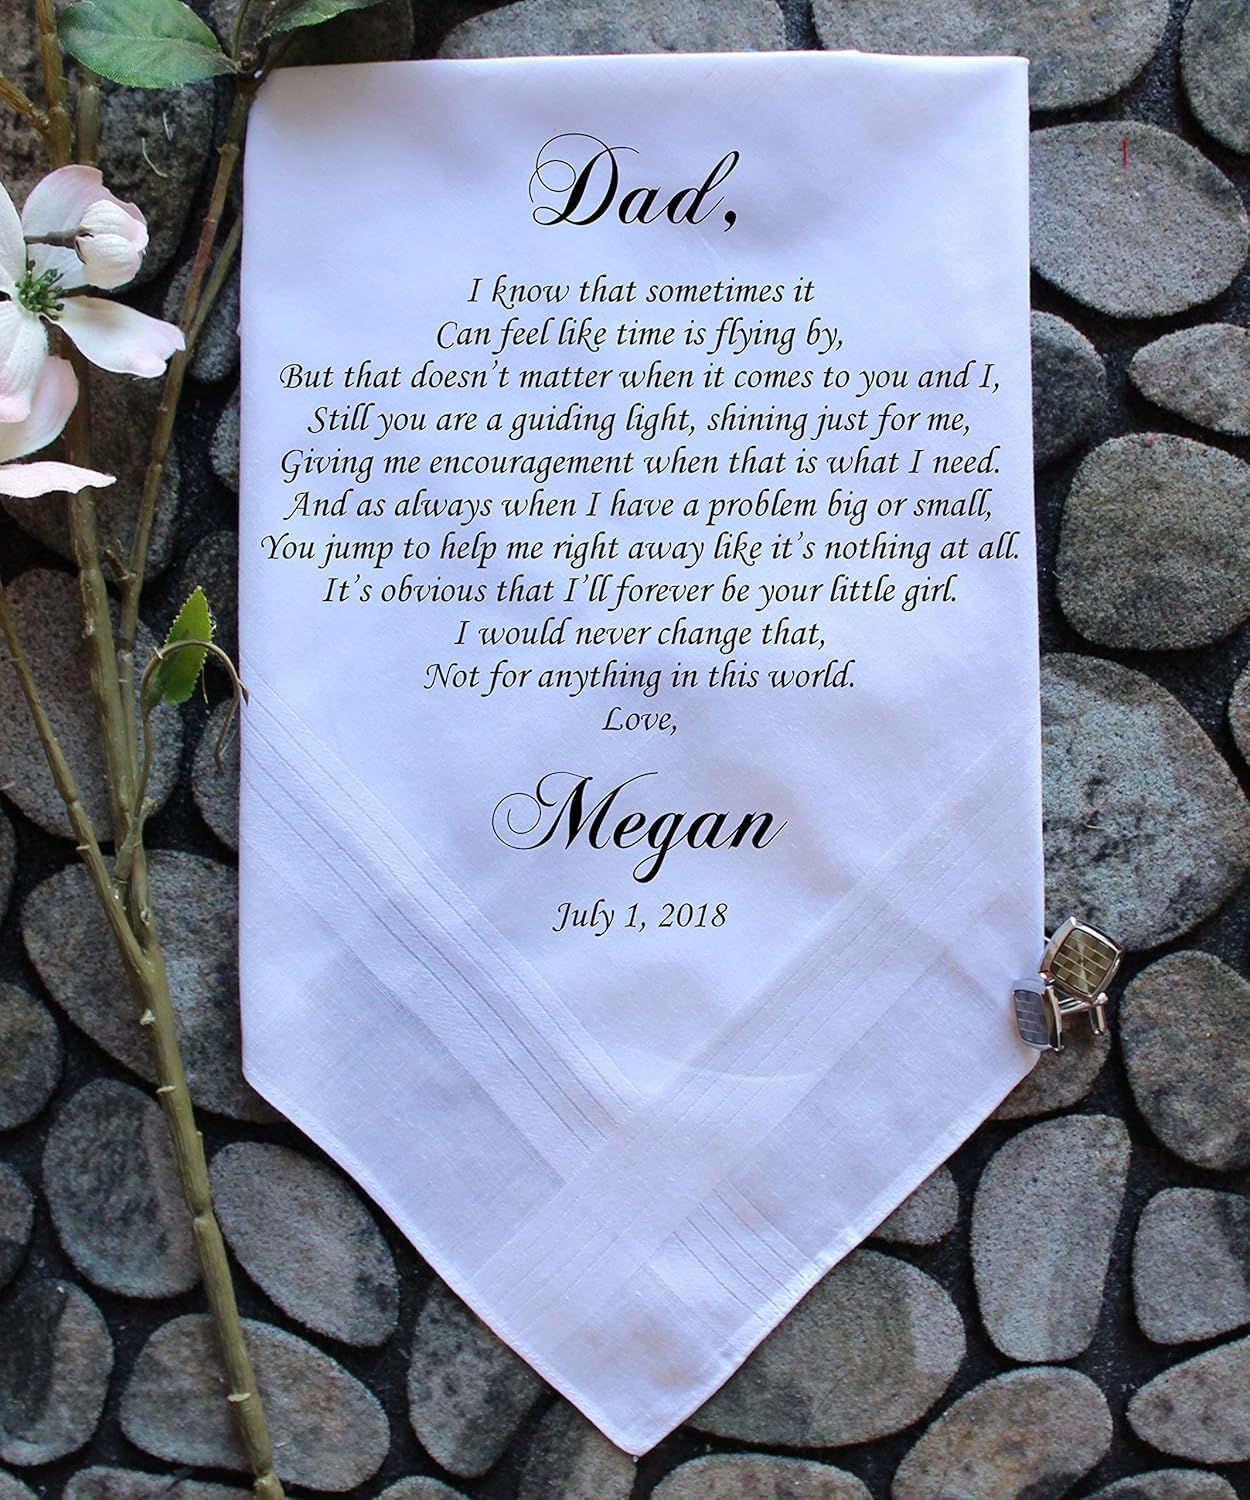 Dad,
I know that sometimes it
Can feel like time is flying by,
But that doesn't matter when it comes to you and I,
Still you are a guiding light, shining just for me,
Giving me encouragement when that is what I need.
And as always when I have a problem big or small,
You jump to help me right away like it's nothing at all.
It's obvious that I'll forever be your little girl.
I would never change that,
Not for anything in this world.
Love,
Megan
July 1, 2018